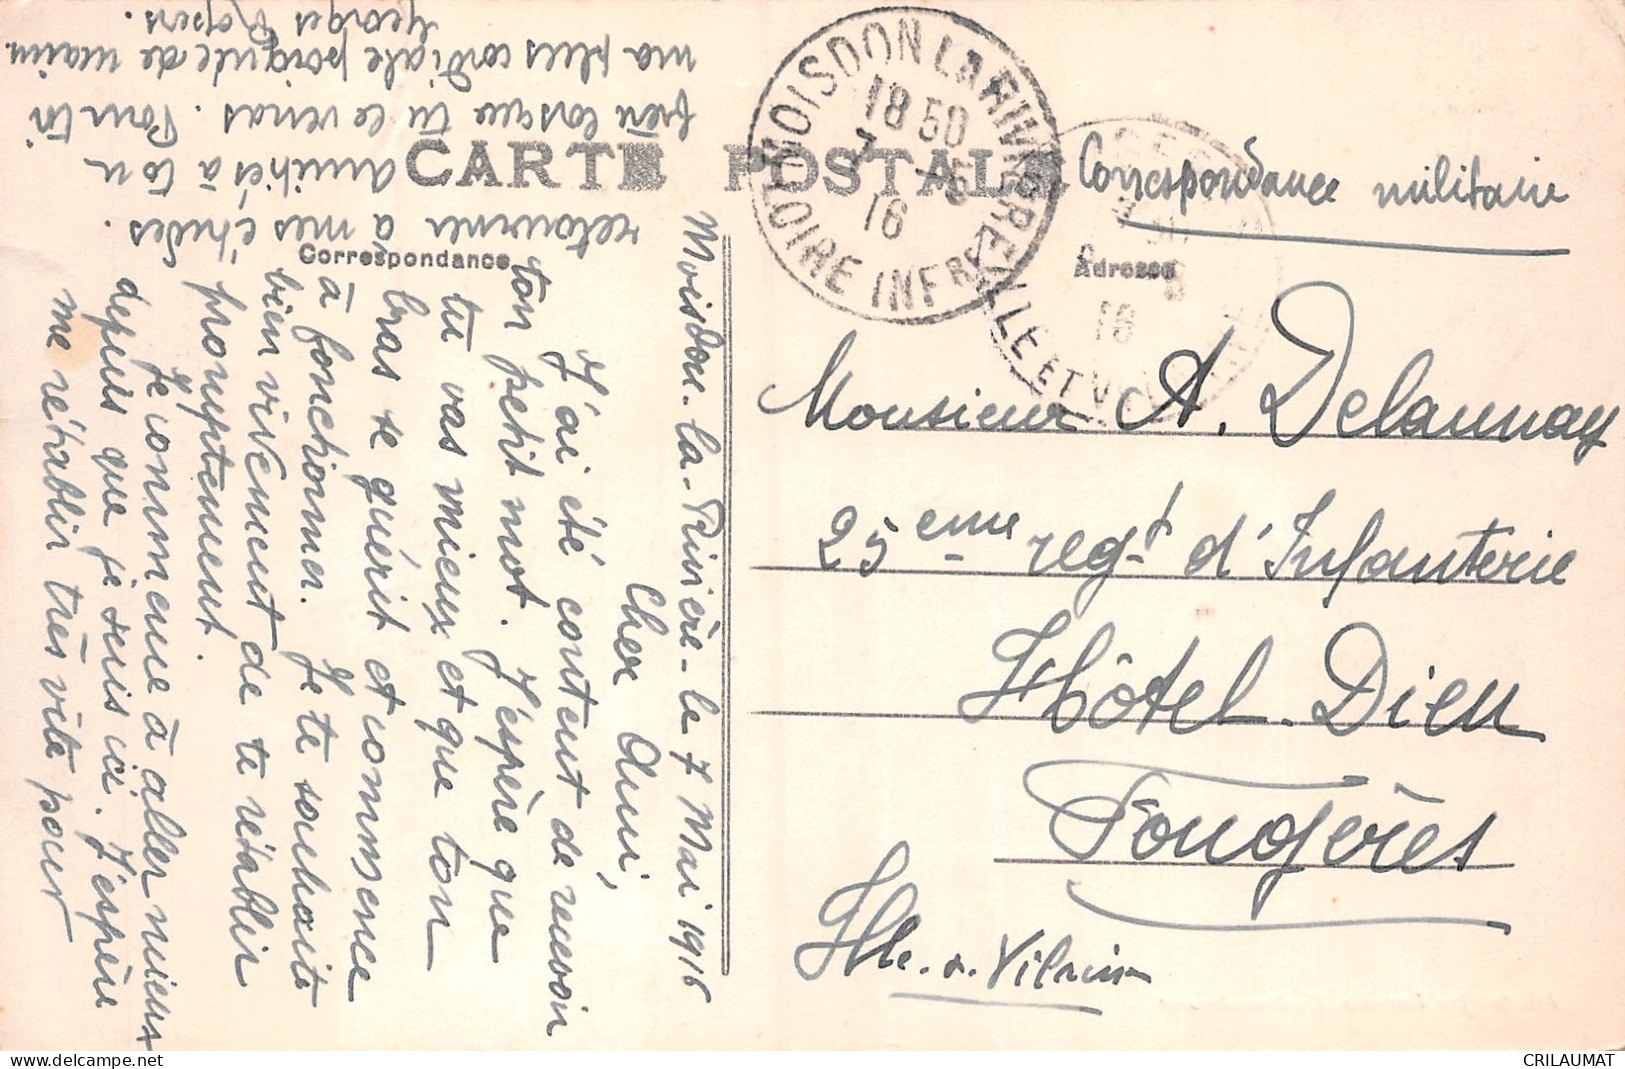 CARTE POSTALE
Correspondance
Adresse
Correspondance militaire
MOISDON LA RIVIERE
18 50
7 -5
16
LOIRE INFRE
GREVILLE ET V
16
Monsieur A. Delaunay
25eme regt d'Infanterie
Hôtel-Dieu
Fougères
Ille-&-Vilaine
Moisdon-la-Rivière-le 7 Mai 1916
Cher Ami,
J'ai été content de recevoir
ton petit mot. J'espère que
tu vas mieux et que ton
bras se guérit et commence
à fonctionner. Je te souhaite
bien vivement de te rétablir
promptement.
Je commence à aller mieux
depuis que je suis ici. J'espère
me rétablir très vite pour
retourner à mes études.
amitiés à ton
lorsque tu le verras. Pour toi
ma plus cordiale poignée de main
Georges
CRILAUMAT